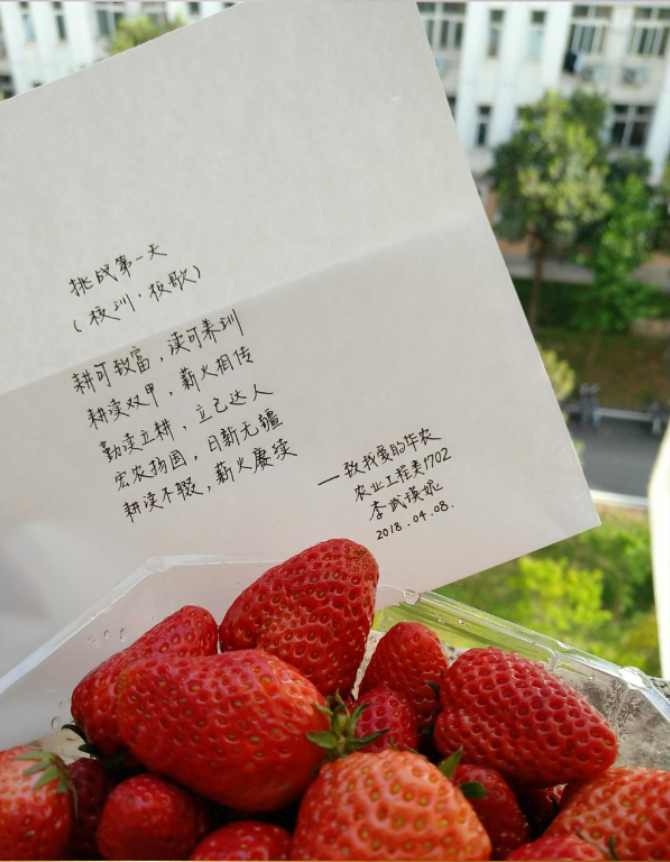 挑战第一天
(校训·校歌)
耕可致富，读可养训
耕读双甲，薪火相传
勤读立耕，立己达人
宏农扬国，日新无疆
耕读不辍，薪火赓续
—致我爱的华农
农业工程类1702
李武瑛妮
2018.04.08.